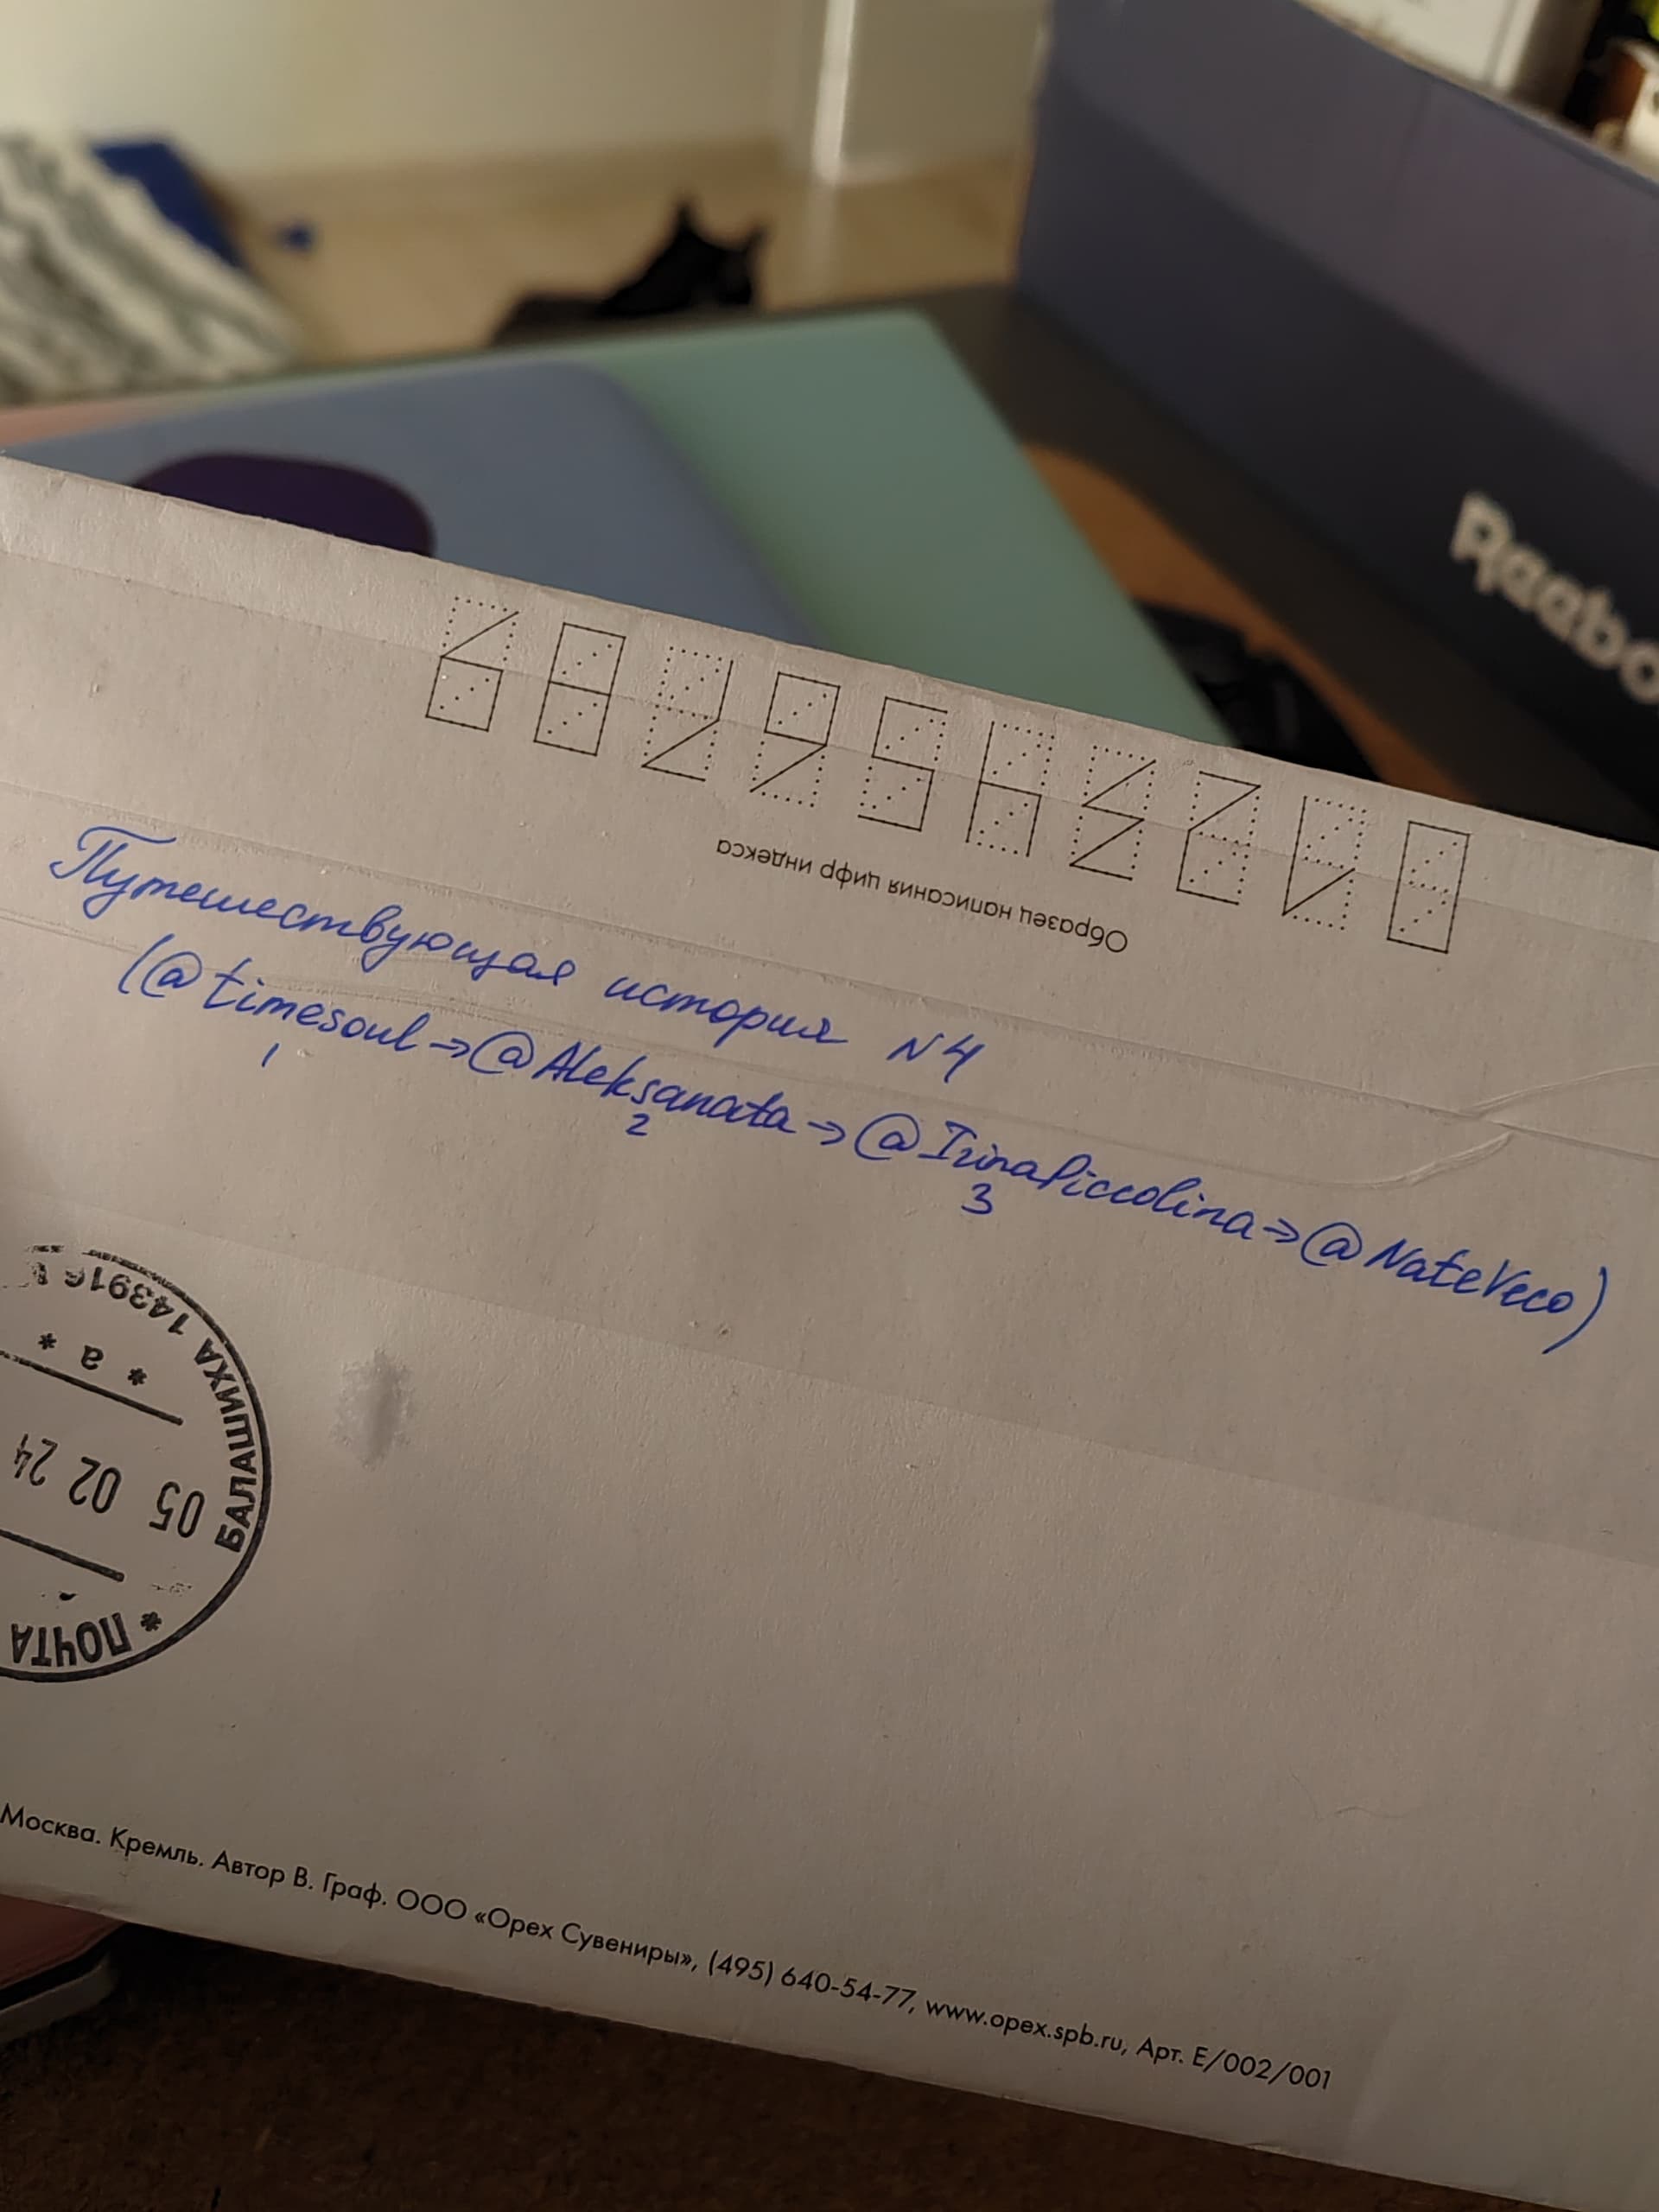 Reebo
0123456789
Образец написания цифр индекса
Путешествующая история N4
(@timesoul→@Aleksanata→@IrinaPiccolina→@NateVeco)
1 2 3
БАЛАШИХА 143916
* а *
05 02 24
* ПОЧТА
Москва. Кремль. Автор В. Граф. ООО «Орех Сувениры», (495) 640-54-77, www.opex.spb.ru, Арт. Е/002/001